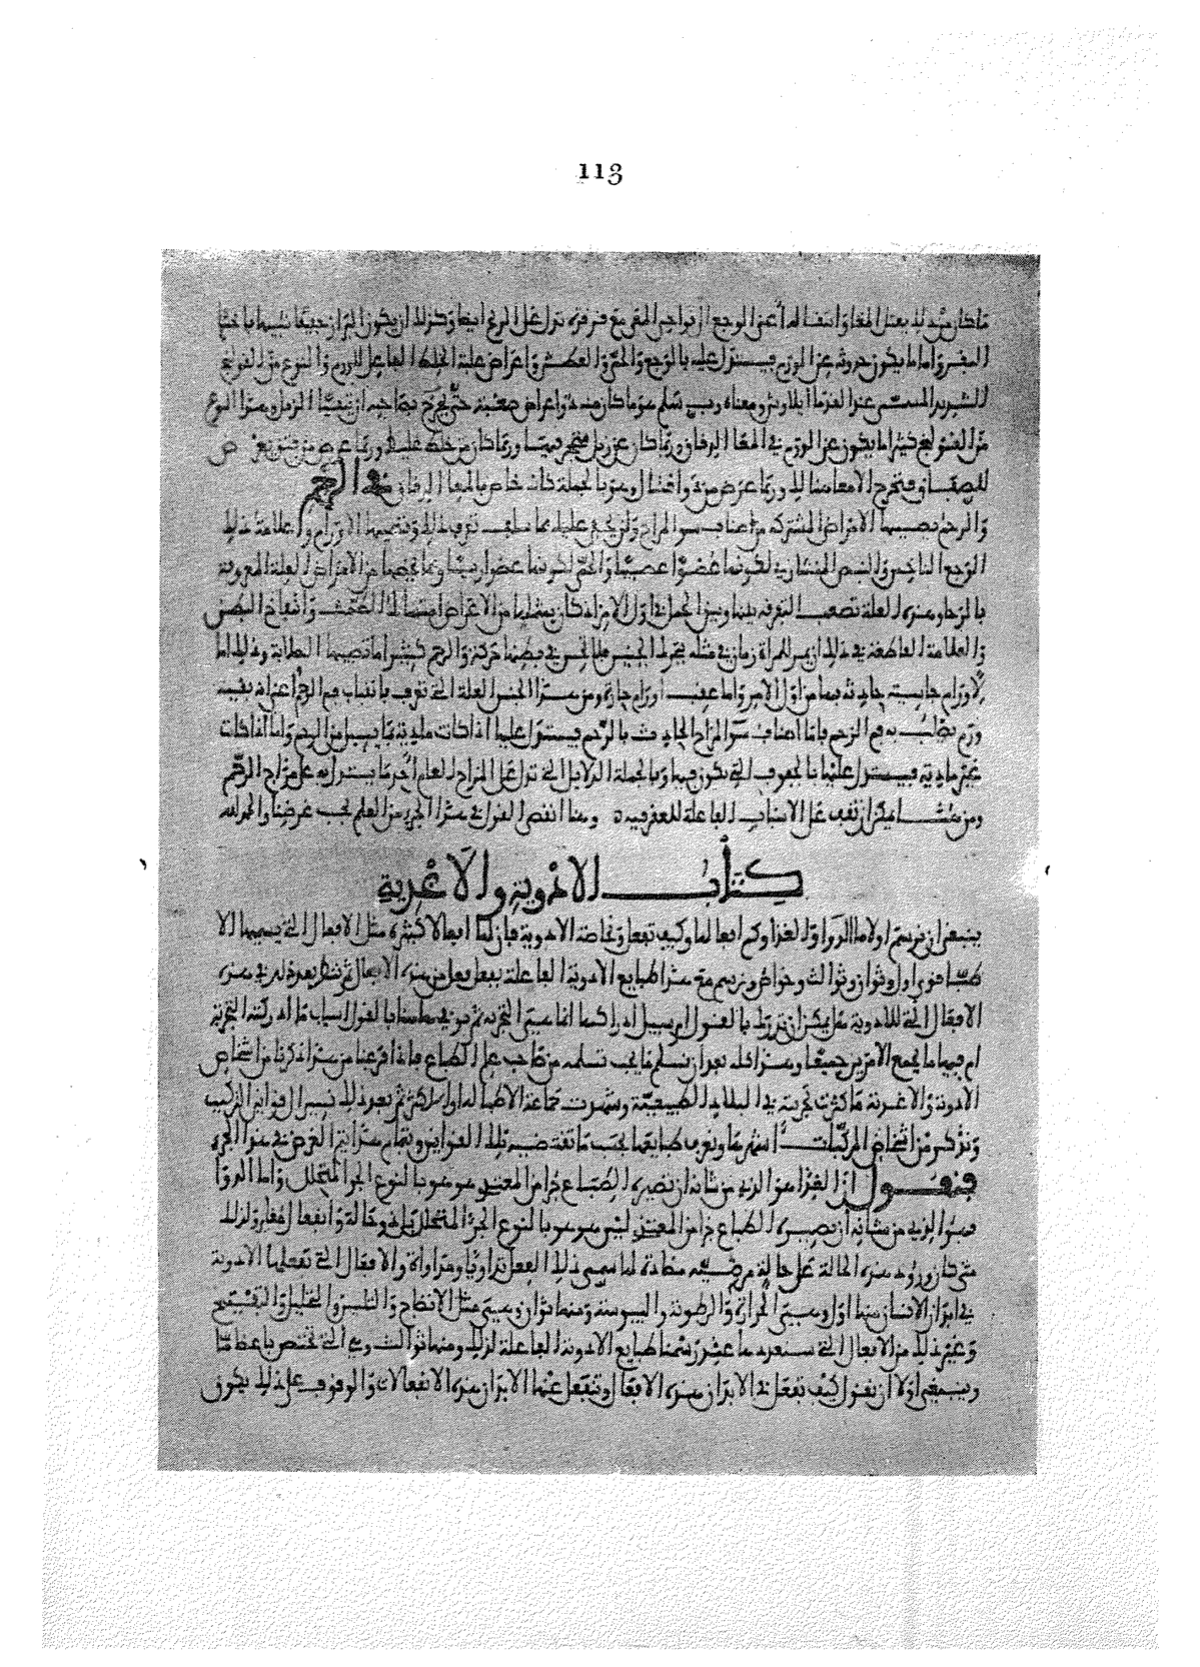 113
ما كان من ذلك بثقل المعا وانتفا الداء عن الوجع
البقر واما ما يكون حدوثه عن الورم فيستدل عليه بالوجع والحمى والعطش واعراض علبة الخلط الفاعل للورم والنوع من القولنج
الشديد المسمى عند القدماء ايلاوش ومعناه رب سلم هو ما كان منه ذو اعراض صعبة حتى يخرج بصاحبه ان يتقيا الزبل وهذا النوع
من القولنج كثيرا ما يكون عن الورم في المعا الدقاق وربما كان عن زبل متحجر فيها وربما كان من خلط غليظ وربما عرض من فتق
للصفاق فتخرج الامعا هنالك وربما عرض من دوا قتال وهو بالجملة كانه خاص بالمعا الدقاق في الرحم
والرحم تصيبها الامراض المشتركة من اصناف سو المزاج وليس يخفى عليك مما سلف تعرف ذلك وتصيبها الاورام وعلامة ذلك
الوجع الناخس والنبض المنشاري لكونها عضوا عصبيا والحمى لكونها عضوا رئيسا ومما يخصها من الامراض العلة المعروفة
بالرحا وهذه العلة تصعب التفرقة بينها وبين الحمل في اول الامر اذ كان يتقدمها من الاعراض احتباس الطمث وانتفاخ البطن
والعلامة القاطعة في ذلك ان يمر للمراة زمان في مثله يتحرك الجنين فلا تحس في بطنها حركة والرحم كثيرا ما تصيبها الصلابة وذلك اما
لاورام جاسية حادثة بها من اول الامر واما عقب اورام حارة ومن هذا الجنس العلة التي تعرف بانقلاب فم الرحم اعني انه بقية
ورم يصلب به فم الرحم فاما اصناف سو المزاج الحادث بالرحم فيستدل عليها اذا كانت مادية بما يسيل من الرحم واما اذا كانت
غير مادية فيستدل عليها بالجفوف التي يكون فيها وبالجملة الدلايل التي تدل على المزاج العام احد ما يستدل به على مزاج الرحم
ومن هنا يمكن ان تقف على الاسباب الفاعلة للعقر فيه ه وهنا انقضى القول في هذا الجزء من العلم بحسب غرضنا والحمد لله
كتاب الادوية والاغذية
ينبغي ان نرسم اولا ما الدوا والغذا وكم افعالها وكيف تفعل وبخاصة الادوية فان لها افعالا كثيرة مثل الافعال التي يسميها الا
طبا قوى اول وثوان وثوالث وخواص ونرسم مع هذا طبايع الادوية الفاعلة بفعل فعل من هذه الافعال ثم ننظر بعد ذلك في هذه
الافعال التي للادوية هل يمكن ان تدرك بالقول او سبيل ادراكها انما هي التجربة ثم نوفي هاهنا بالقول اسباب ما ادركته التجربة
ام فيها ما يجمع الامرين جميعا وهذا كله بعد ان نتسلم ما يجب تسلمه من صاحب علم الطباع فاذا فرغنا من هذا ذكرنا من اشخاص
الادوية والاغذية ما كثرت تجربته في البلاد الطبيعية وشهدت جماعة الاطبا له او اكثرهم ثم بعد ذلك نسير الى قوانين التركيب
ونذكر من اشخاص المركبات اشهرها ونعرف طبايعها بحسب ما تقتضيه تلك القوانين وبتمام هذا يتم الغرض في هذا الجزء
فنقول ان الغذا هو الذي من شانه ان تصيره الطباع جزءا من المغتذي هو هو بالنوع الجزء المتحلل واما الدوا
فهو الذي من شانه ان تصيره الطباع جزءا من المغتذي ليس هو هو بالنوع الجزء المتحلل بل ذو حالة وانفعال مغاير ولذلك
متى كان ورود هذه الحالة على حالة مرضية مضادة لها سمي ذلك الفعل تداويا ومداواة والافعال التي تفعلها الادوية
في ابدان الانسان منها اول وهي الحرارة والرطوبة واليبوسة ومنها ثوان وهي مثل الانضاج والتليين والتحليل والتفتيح
وغير ذلك من الافعال التي سنعددها عند رسمنا طبايع الادوية الفاعلة لذلك ومنها ثوالث وهي التي تختص باعضا ما
وينبغي اولا ان نقول كيف تفعل في الابدان هذه الافعال وتنفعل عنها الابدان هذه الانفعالات والوقوف على ذلك يكون